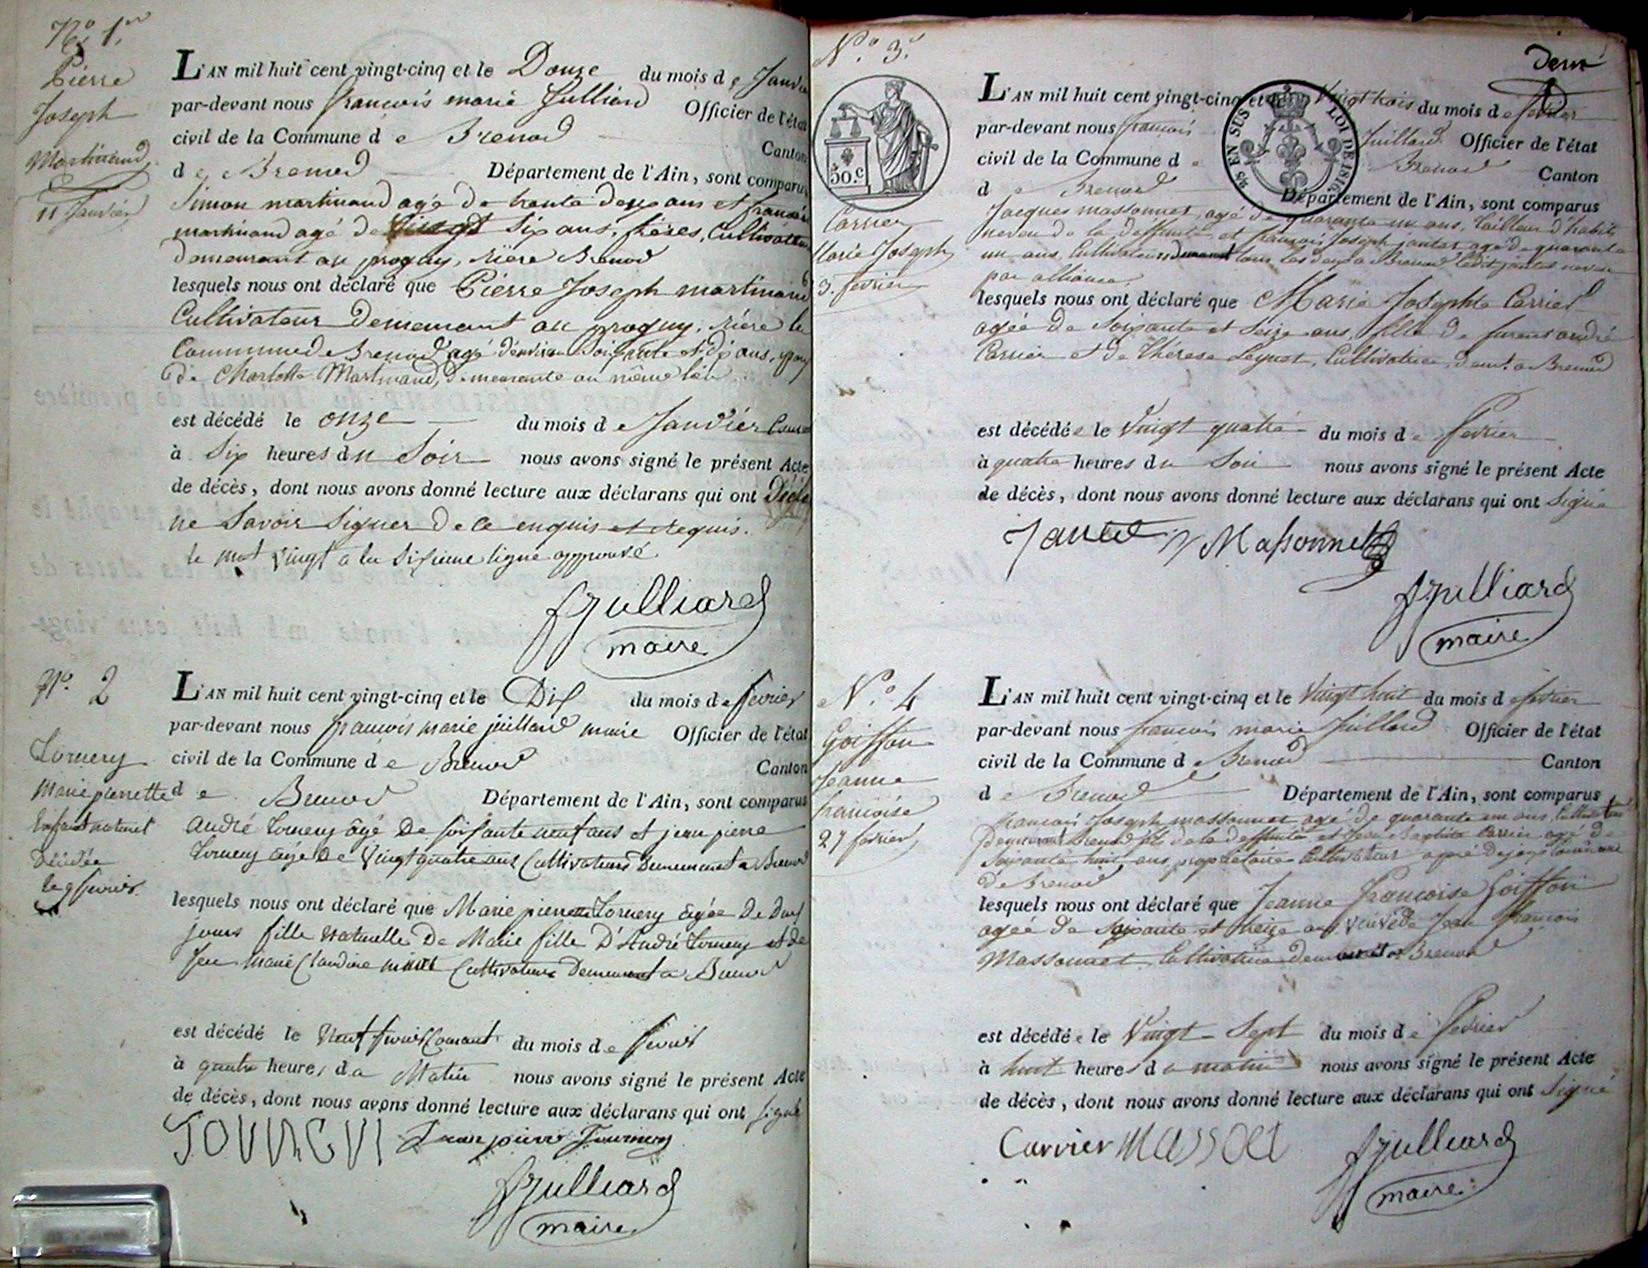 No. 1er
Pierre
Joseph
Martinand
11 Janvier
L'AN mil huit cent vingt-cinq et le Douze du mois de Janvier
par-devant nous françois marie Julliard Officier de l'état
civil de la Commune de Brenod Canton
de Brenod Département de l'Ain, sont comparus
Simon martinand agé de trante deux ans et françois
martinand agé de vingt six ans, frères, Cultivateurs
demeurant au progny, rière Brenod
lesquels nous ont déclaré que Pierre Joseph martinand
Cultivateur Demeurant au progny, rière la
Commune de Brenod agé d'environ soixante et dix ans, epoux
de Charlotte Martinand, demeurante au même lieu
est décédé le onze du mois de Janvier Courant
à Six heures du Soir nous avons signé le présent Acte
de décès, dont nous avons donné lecture aux déclarans qui ont Déclaré
ne Savoir Signer de ce enquis et requis.
le mot vingt à la sixieme ligne approuvé
fJulliard
maire
No. 2
Tournery
Marie pierrette
Enfant naturel
Décédée
le 9 fevrier
L'AN mil huit cent vingt-cinq et le Dix du mois de fevrier
par-devant nous françois marie juillard maire Officier de l'état
civil de la Commune de Brenod Canton
de Brenod Département de l'Ain, sont comparus
andré Tournery âgé De soixante neuf ans et jean pierre
Tournery âgé De Vingt quatre ans Cultivateurs Demeurant a Brenod
lesquels nous ont déclaré que Marie pierrette Tournery âgée De Deux
jours fille Naturelle De Marie fille D'André Tournery et de
feu marie Claudine Cultivateurs Demeurant a Brenod
est décédé le Neuf fevrier Courant du mois de fevrier
à quatre heures da Matin nous avons signé le présent Acte
de décès, dont nous avons donné lecture aux déclarans qui ont signé
Jean pierre Tournery
fJulliard
maire
deux
No. 3.
50.c
EN SUS LOI DE 1816.
Carrier
Marie Joseph
3. fevrier
L'AN mil huit cent vingt-cinq et le Vingt trois du mois de fevrier
par-devant nous françois Juillard Officier de l'état
civil de la Commune de Brenod Canton
de Brenod Département de l'Ain, sont comparus
Jacques massonnet, agé de quarante un ans, tailleur d'habit
neveu de la deffunte, et françois Joseph jantet agé de quarante
un ans, Cultivateurs demeurant tous les deux a Brenod ledit jantet neveu
par alliance.
lesquels nous ont déclaré que Marie Josephte Carrier
agée de Soixante et Seize ans, fille de andré
Carrier et de Thérese Cultivatrice, demt. a Brenod
est décédée le Vingt quatre du mois de fevrier
à quatre heures du Soir nous avons signé le présent Acte
de décès, dont nous avons donné lecture aux déclarans qui ont Signé
Jantet Massonnet
fJulliard
maire
No. 4
Goiffon
Jeanne
françoise
27 fevrier
L'AN mil huit cent vingt-cinq et le Vingt huit du mois de fevrier
par-devant nous françois marie Juillard Officier de l'état
civil de la Commune de Brenod Canton
de Brenod Département de l'Ain, sont comparus
francois Joseph massonnet agé de quarante un ans, Cultivateur
Demeurant Brenod fils de la deffunte et Jean Baptiste Carrier agé de
Soixante huit ans, propriétaire Cultivateur
de Brenod
lesquels nous ont déclaré que Jeanne françoise Goiffon
agée de Soixante et treize ans veuve de Jean françois
Massonnet Cultivatrice demeurant a Brenod
est décédée le Vingt Sept du mois de fevrier
à huit heures du matin nous avons signé le présent Acte
de décès, dont nous avons donné lecture aux déclarans qui ont Signé
Carrier Massoet
fJulliard
maire